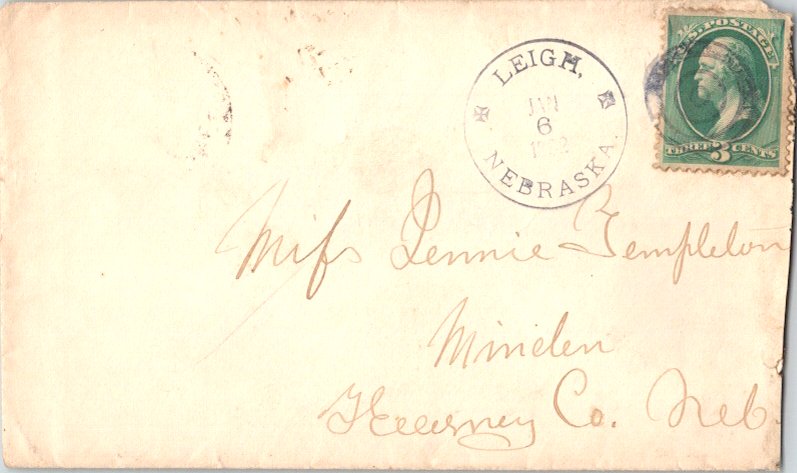 LEIGH,
JAN
6
NEBRASKA.
U.S. POSTAGE
THREE 3 CENTS
Miss Jennie Templeton
Minden
Kearney Co. Neb.